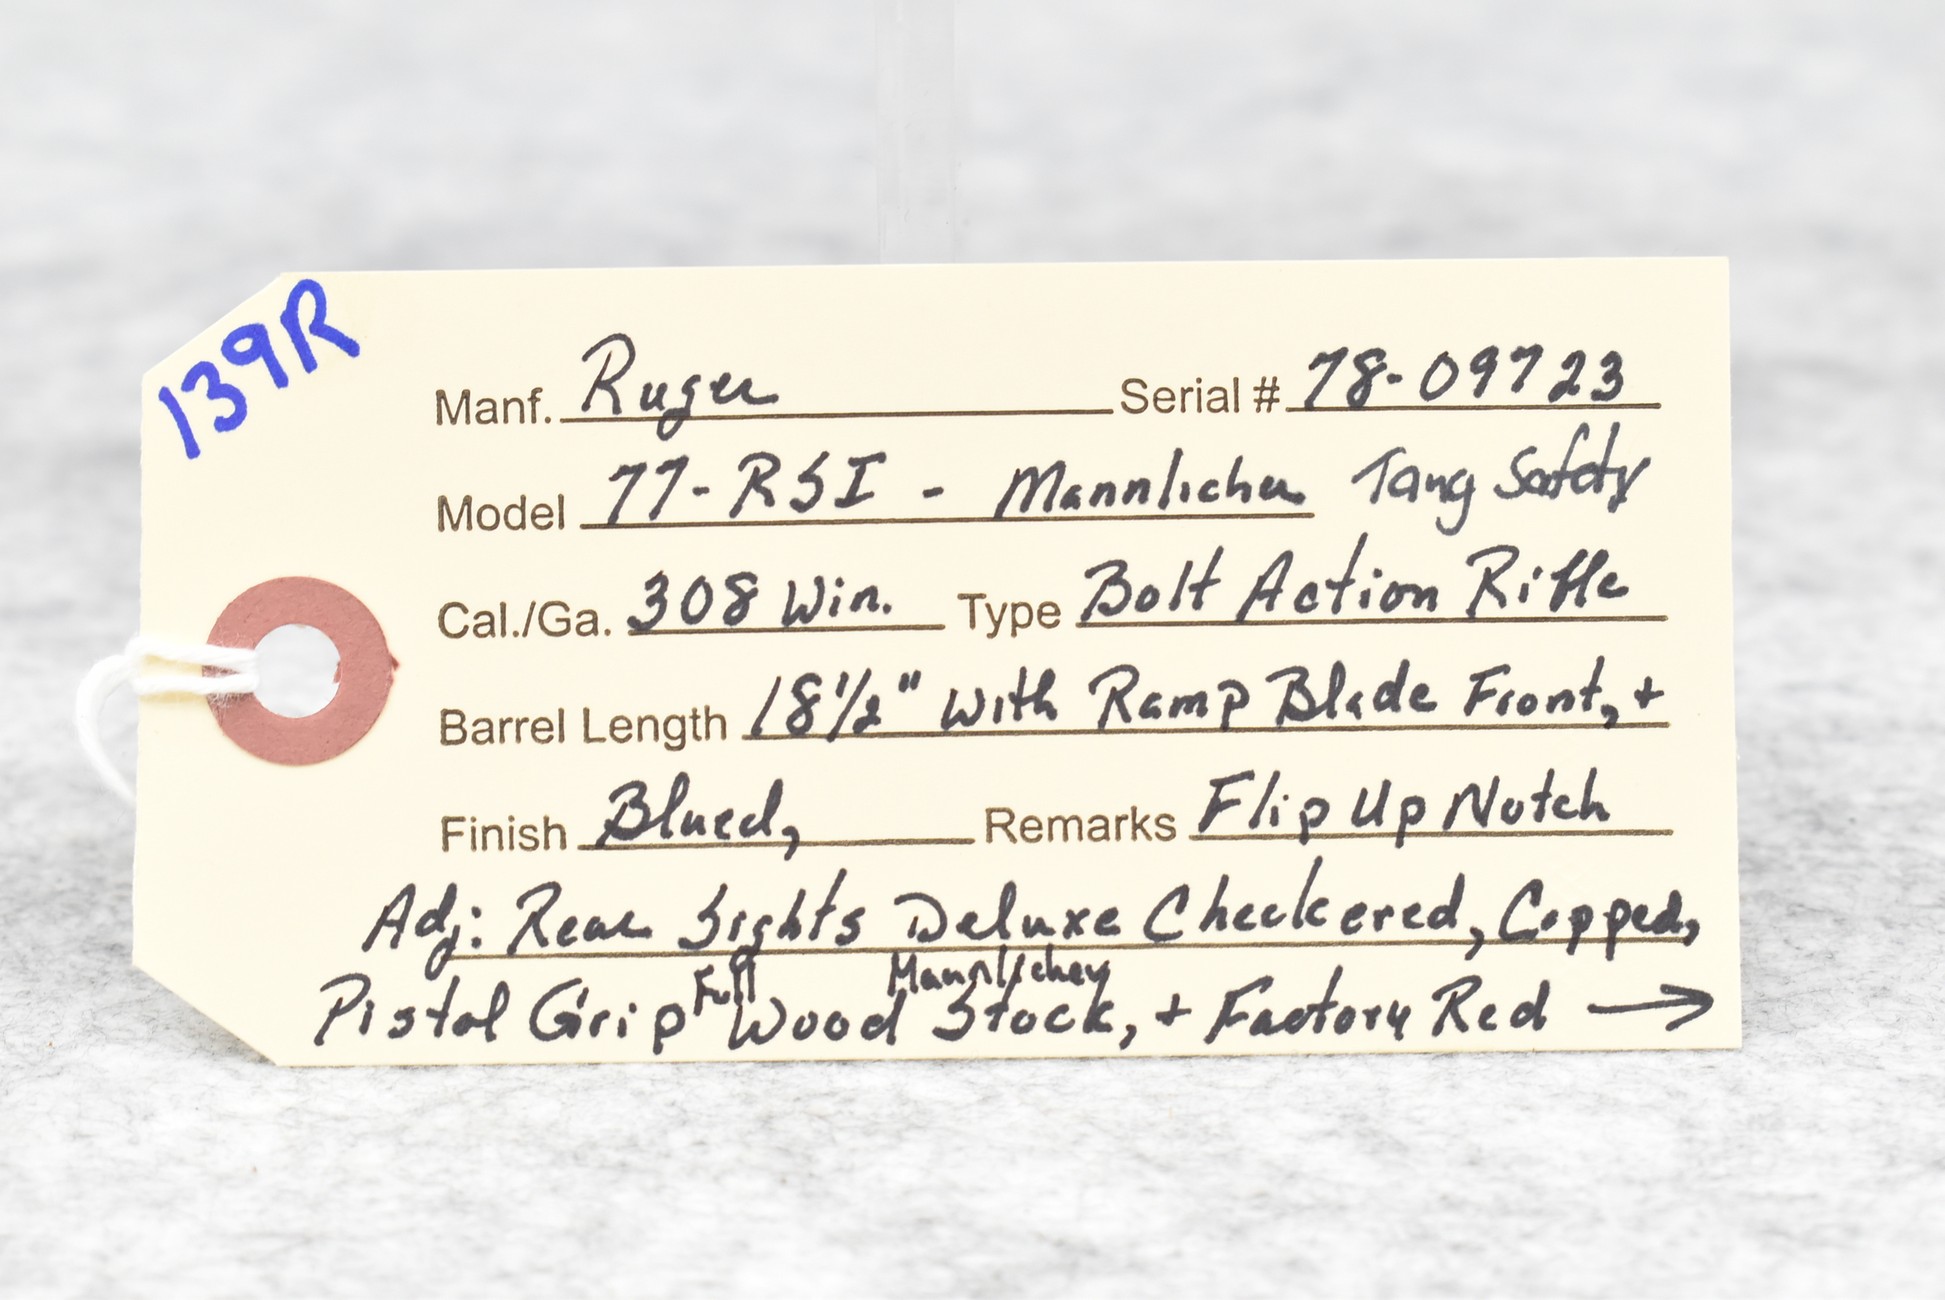 139R
Manf. Ruger Serial # 78-09723
Model 77-RSI - Mannlicher Tang Safety
Cal./Ga. 308 Win. Type Bolt Action Rifle
Barrel Length 18 1/2" with Ramp Blade Front, +
Finish Blued, Remarks Flip Up Notch
Adj: Rear Sights Deluxe Checkered, Capped,
Pistol Grip Full Wood Mannlicher Stock, + Factory Red →